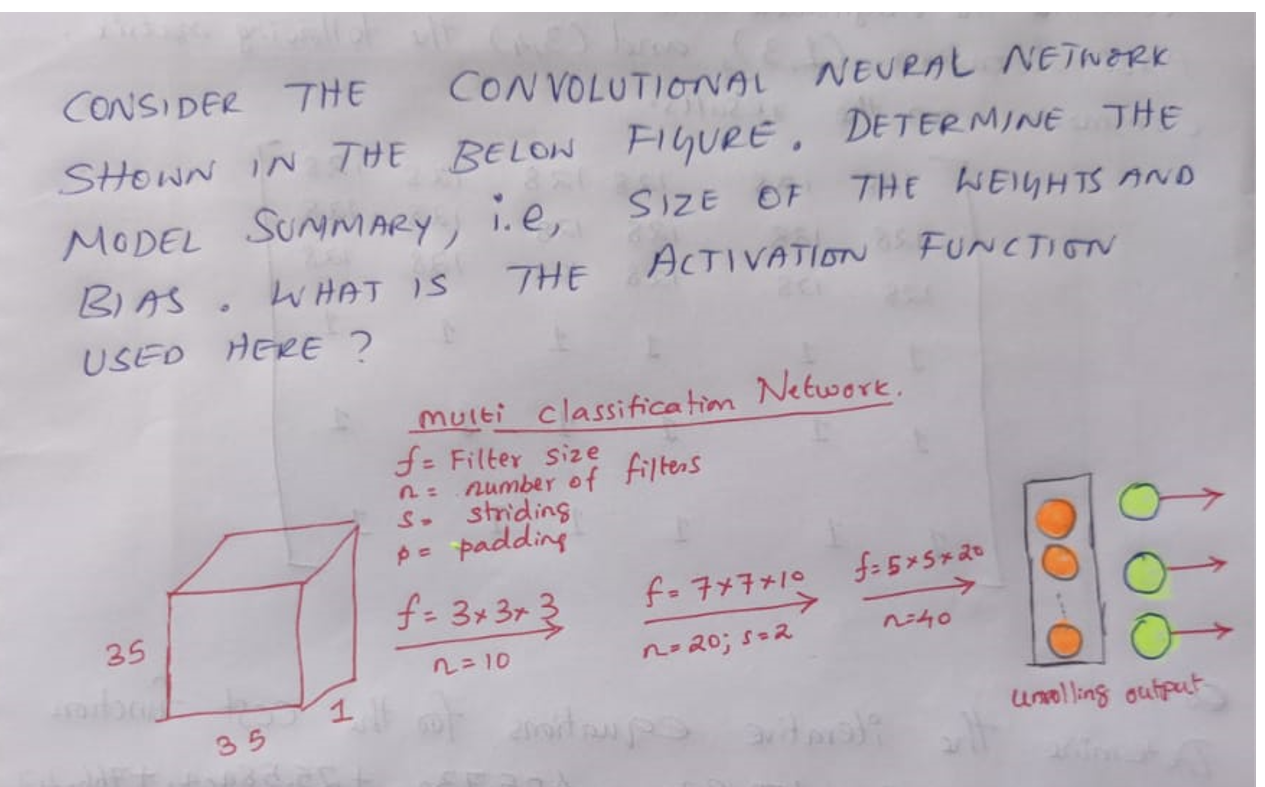 CONSIDER THE CONVOLUTIONAL NEURAL NETWORK
SHOWN IN THE BELOW FIGURE. DETERMINE THE
MODEL SUMMARY, i.e, SIZE OF THE WEIGHTS AND
BIAS. WHAT IS THE ACTIVATION FUNCTION
USED HERE?
multi classification Network.
f= Filter size
n= number of filters
s= striding
p= padding
35
35
1
f= 3x3x3
n=10
f= 7x7x10
n=20; s=2
f=5x5x20
n=40
unrolling output